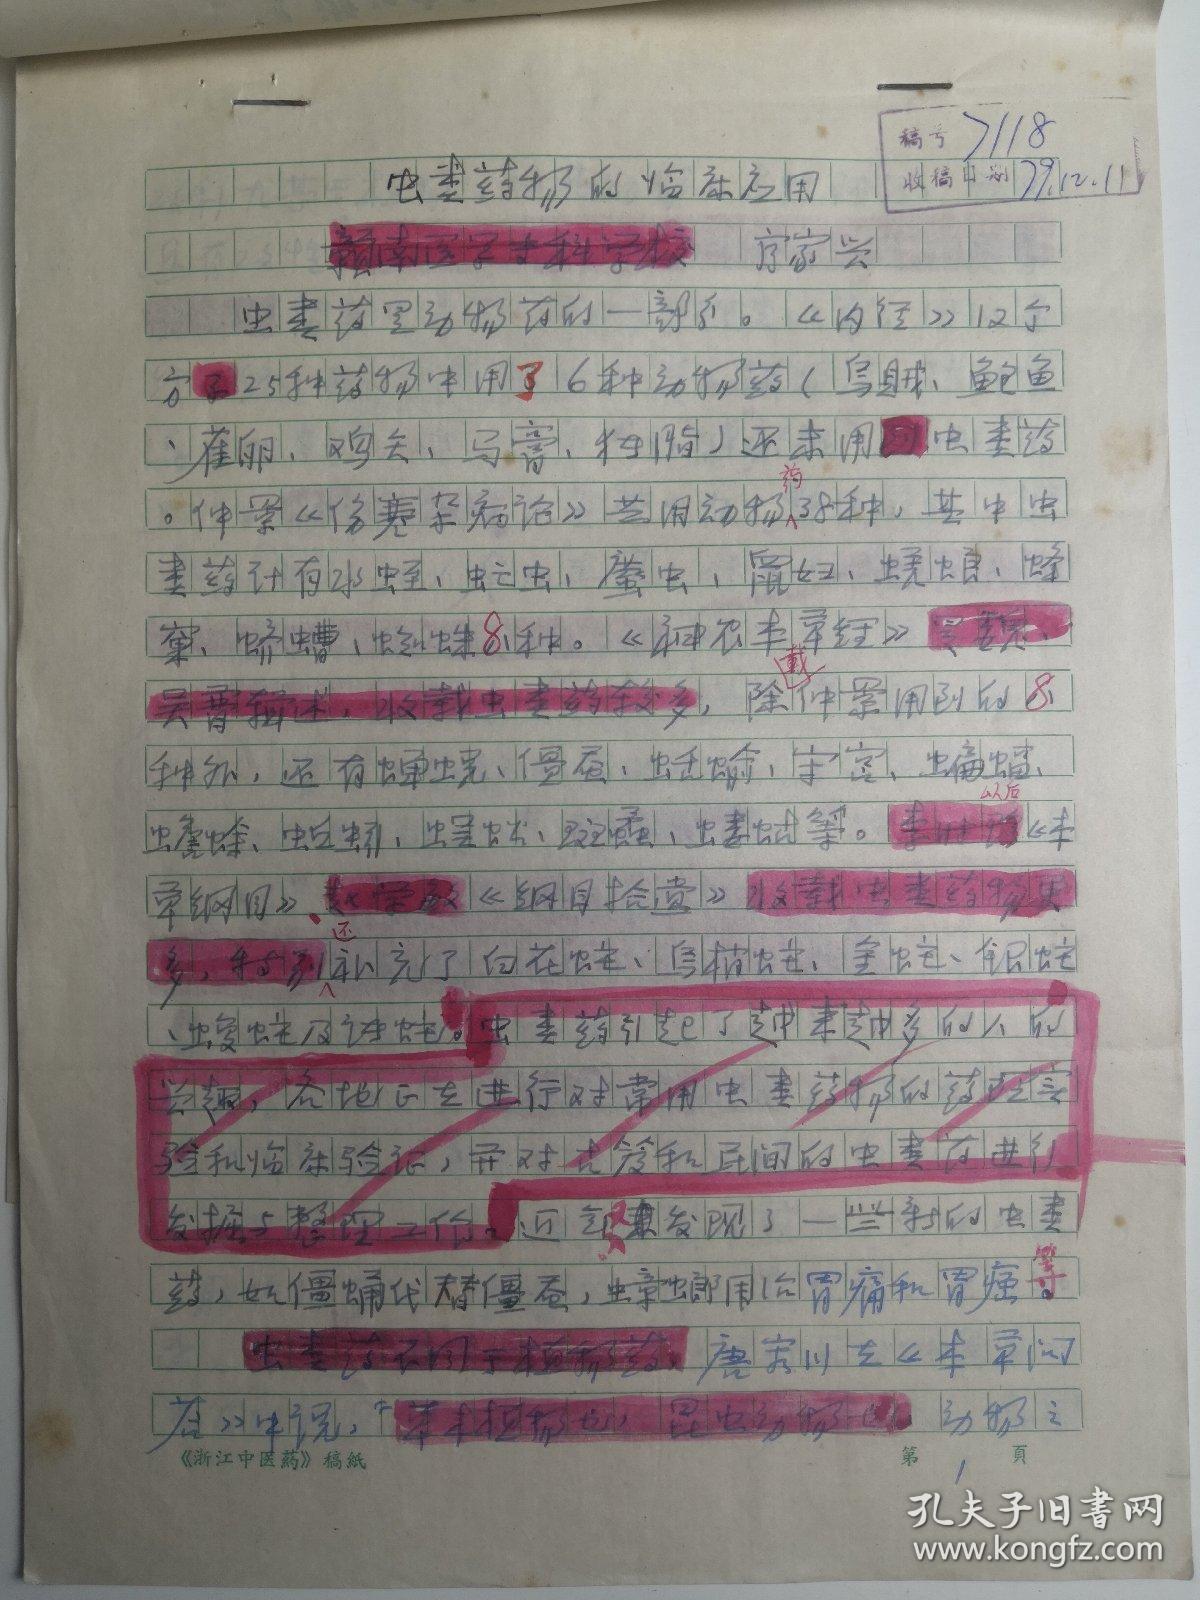 稿号 7118
收稿日期 79.12.11
虫类药物的临床应用
赣南医学专科学校 家兴
虫类药是动物药的一部分。《内经》12个
方子25种药物中用了6种动物药（乌贼、鲍鱼
、雀卵、鸡矢、马膏、牡脂）还未用到虫类药
。仲景《伤寒杂病论》共用动物药38种，其中虫
类药计有水蛭、虻虫、䗪虫、鼠妇、蜣螂、蜂
窠、蛴螬、蜘蛛8种。《神农本草经》
吴普辑述，收载虫类药较多，除载仲景用到的8
种外，还有蝉蜕、僵蚕、蛞蝓、守宫、蝙蝠、
蟾蜍、蚯蚓、蜈蚣、斑蝥、虫等。李时珍以后《本
草纲目》赵学敏《纲目拾遗》收载虫类药物更
多，特别还补充了白花蛇、乌梢蛇、金蛇、银蛇
、蝮蛇及诸蛇。虫类药引起了越来越多的人的
兴趣，各地正在进行对常用虫类药物的药理实
验和临床验证，并对古籍和民间的虫类药进行
发掘与整理工作。近年来发现了一些新的虫类
药，如僵蛹代替僵蚕，蟑螂用治胃痛和胃癌等。
虫类药不同于植物药，唐容川在《本草问
答》中说，“草木植物也，昆虫动物也，动物之
《浙江中医药》稿紙 第1頁
孔夫子旧书网
www.kongfz.com